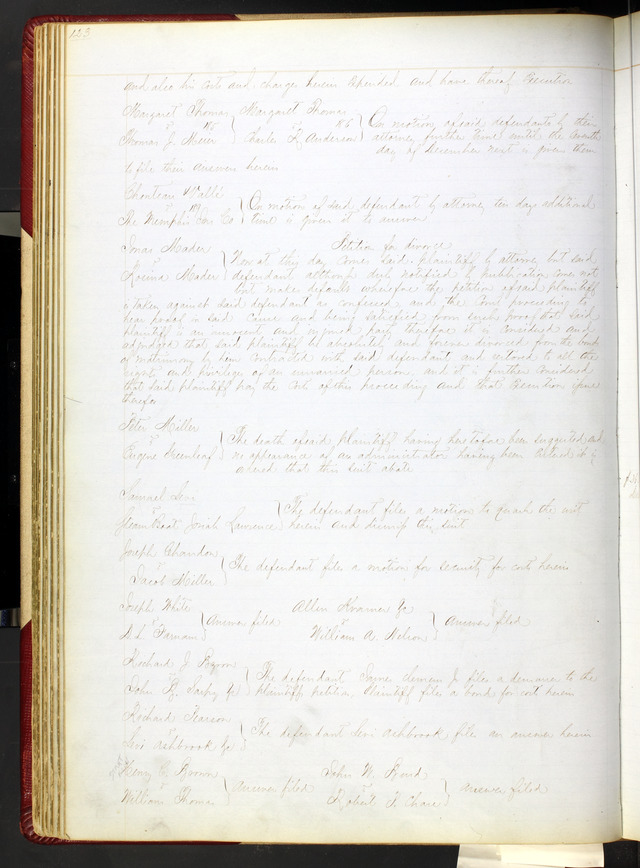 123
and also his costs and charges herein expended and have thereof Execution
Margaret Thomas Margaret Thomas
vs 185 vs 185 On motion of said defendants by their
Thomas J. Meier Charles R. Anderson attorney further time until the
day of December next is given them
to file their answer herein
Chouteau & Vallé
vs On motion of said defendant by attorney ten days additional
The Memphis Co time is given it to answer
Jonas Mader Petition for divorce
vs Now at this day comes said plaintiff by attorney but said
Mader defendant although duly notified by publication comes not
but makes default wherefore the petition of said plaintiff
is taken against said defendant as confessed and the Court proceeding to
hear proof in said cause and being satisfied from such proof that said
plaintiff is an innocent and injured party therefore it is considered and
adjudged that said plaintiff be absolutely and forever divorced from the bonds
of matrimony by him contracted with said defendant and restored to all the
rights and privileges of an unmarried person and it is further considered
that said plaintiff pay the cost of this proceeding and that Execution issue
therefor
Peter Miller
vs The death of said plaintiff having heretofore been suggested and
Eugene Greenleaf no appearance of an administrator having been entered it is
ordered that this suit abate
Samuel
vs The defendant files a motion to quash the writ
Steam Boat Josiah Lawrence herein and dismiss this suit
Joseph Chandon
vs The defendant files a motion for security for costs herein
Jacob Miller
Joseph White Allen Kramer &c
vs Answer filed vs Answer filed
Farnam William A. Nelson
Richard J.
vs The defendant James Clemens Jr files a demurrer to the
John B. Sarpy &c plaintiffs petition. Plaintiff files a bond for cost herein
Richard Pearson
vs The defendant Levi Ashbrook files an answer herein
Levi Ashbrook &c
Henry C. Brown John W.
vs Answer filed vs Answer filed
William Thomas Robert T. Chase